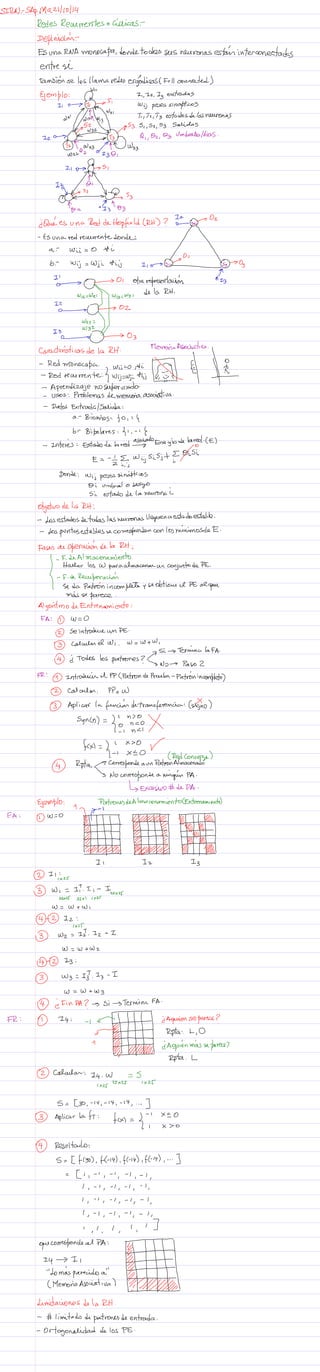 Redes Recurrentes o Cíclicas:-
Definición:-
Es una RNA monocapa, donde todas sus neuronas están interconectadas
entre sí
También se les llama redes
Ejemplo:
I1, I2, I3 entradas
Wij pesos sinápticos
S1, S2, S3 Salidas
θ1, θ2, θ3 Umbrales
¿Qué es una Red de Hopfield (RH)?
- Es una red recurrente donde:
a.- Wii = 0 ∀i
b.- Wij = Wji ∀ij
otra representación
de la RH.
Características de la RH:
Memoria Asociativa
- Red monocapa
- Red recurrente } Wii=0, ∀i
Wij=Wji ∀ij
- Aprendizaje no supervisado
- Usos: Problemas de memoria asociativa
- Datos Entrada/Salida:
a- Binarios: {0,1}
b- Bipolares: {1,-1}
- Interés: Estado de la red asociado Energía de la red (E)
E = -1/2 Σ Wij Si Sj + Σ θi Si
i,j
Donde: Wij pesos sinápticos
θi umbral o sesgo
Si estado de la neurona i
Objetivo de la RH:
- Los estados de todas las neuronas lleguen a estado estable.
- Los puntos estables se correspondan con los mínimos de E.
Fases de operación de la RH:
- F. de Almacenamiento
Hallar los W para almacenar un conjunto de PE
- F. de Recuperación
Se da Patrón incompleto y se obtiene el PE al que
más se parece
Algoritmo de Entrenamiento:
FA: ① W=0
② Se introduce un PE.
③ Calcular el Wi. W = W + Wi
④ ¿Todos los patrones? Si → Termina la FA
No → Paso 2
FR: ① Introducir el PP (Patrón de Prueba - Patrón incompleto)
② Calcular: PP * W
③ Aplicar la función de transferencia: (signo)
Sgn(n) = { 1 n>0
0 n=0
-1 n<1
f(x) = { 1 x>0
-1 x≤0
④ Rpta. Corresponde a un Patrón Almacenado
No corresponde a ningún PA.
↳ Excesivo # de PA.
Ejemplo: Patrones de Almacenamiento (Entrenamiento)
FA: ① W=0
I1 I2 I3
② I1:
1x25
③ W1 = I1ᵀ. I1 - I
25x25 25x1 1x25 25x25
W = W + W1
④-② I2:
1x25
③ W2 = I2ᵀ. I2 - I
W = W + W2
④-② I3:
③ W3 = I3ᵀ. I3 - I
W = W + W3
④ ¿Fin PA? → Si → Termina FA.
FR: ① I4: -1
1
¿A quién se parece?
Rpta. L, O
¿A quién más se parece?
Rpta. L
② Calcular: I4 . W = S
1x25 25x25 1x25
S = [30, -14, -14, -14, ...]
③ Aplicar la fT: f(x) = { -1 x≤0
1 x>0
④ Resultado:
S = [f(30), f(-14), f(-14), f(-14), ...]
= [1, -1, -1, -1, -1,
1, -1, -1, -1, -1,
1, -1, -1, -1, -1,
1, -1, -1, -1, -1,
1, 1, 1, 1, 1]
que corresponde al PA:
I4 → I1
"Lo más parecido a"
(Memoria Asociativa)
Limitaciones de la RH
- # limitado de patrones de entrada.
- Ortogonalidad de los PE.